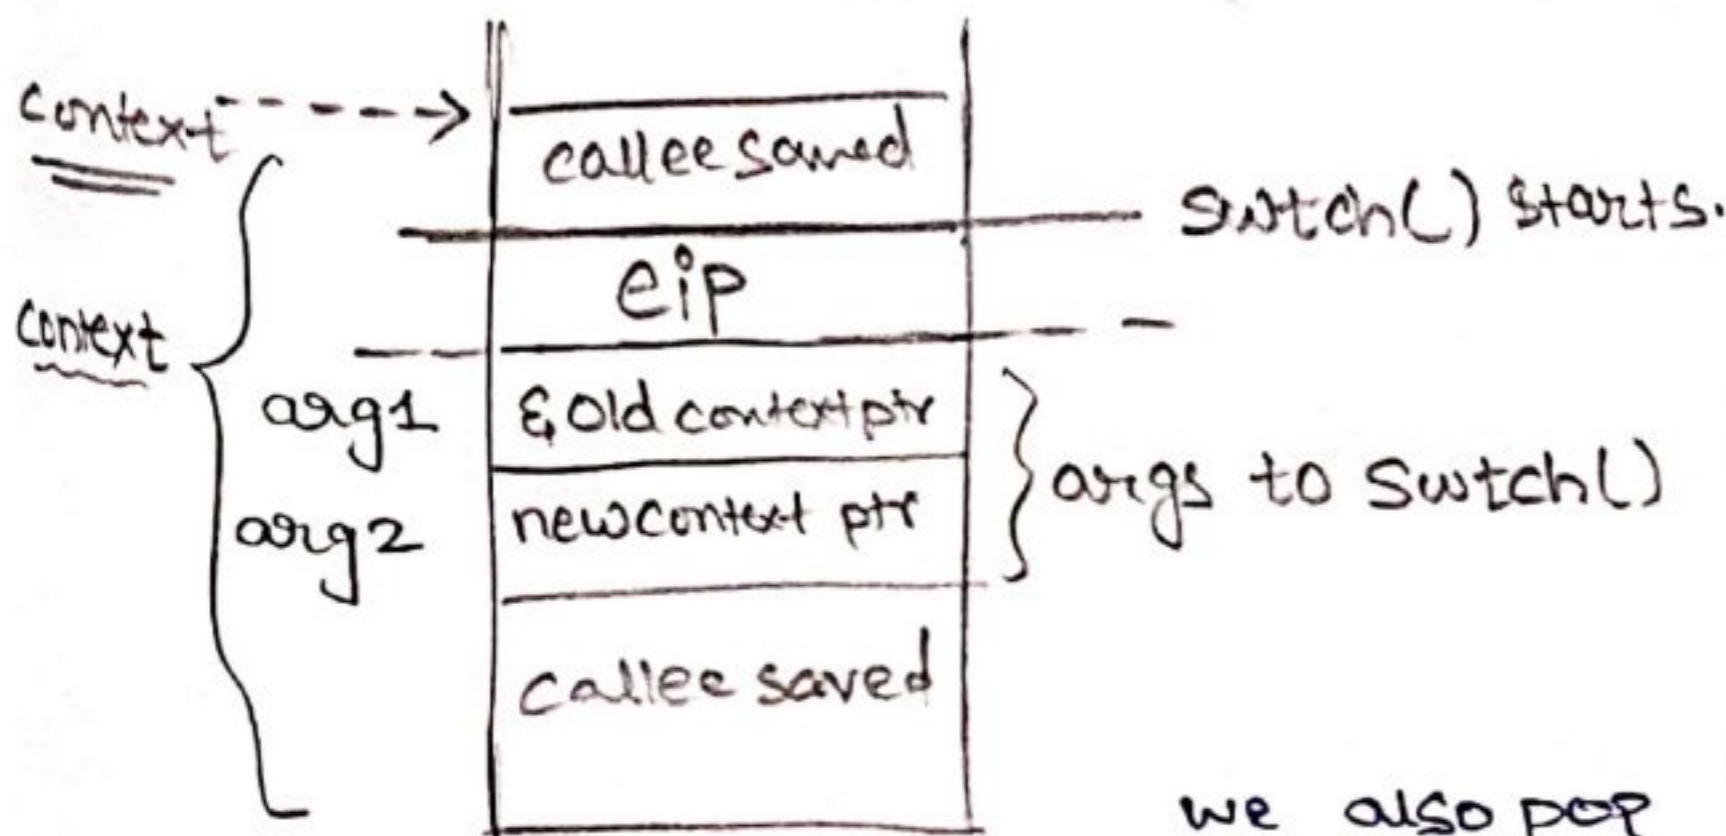 context
callee saved
swtch() starts.
eip
context
arg1
& old context ptr
arg2
new context ptr
args to swtch()
callee saved
we also pop